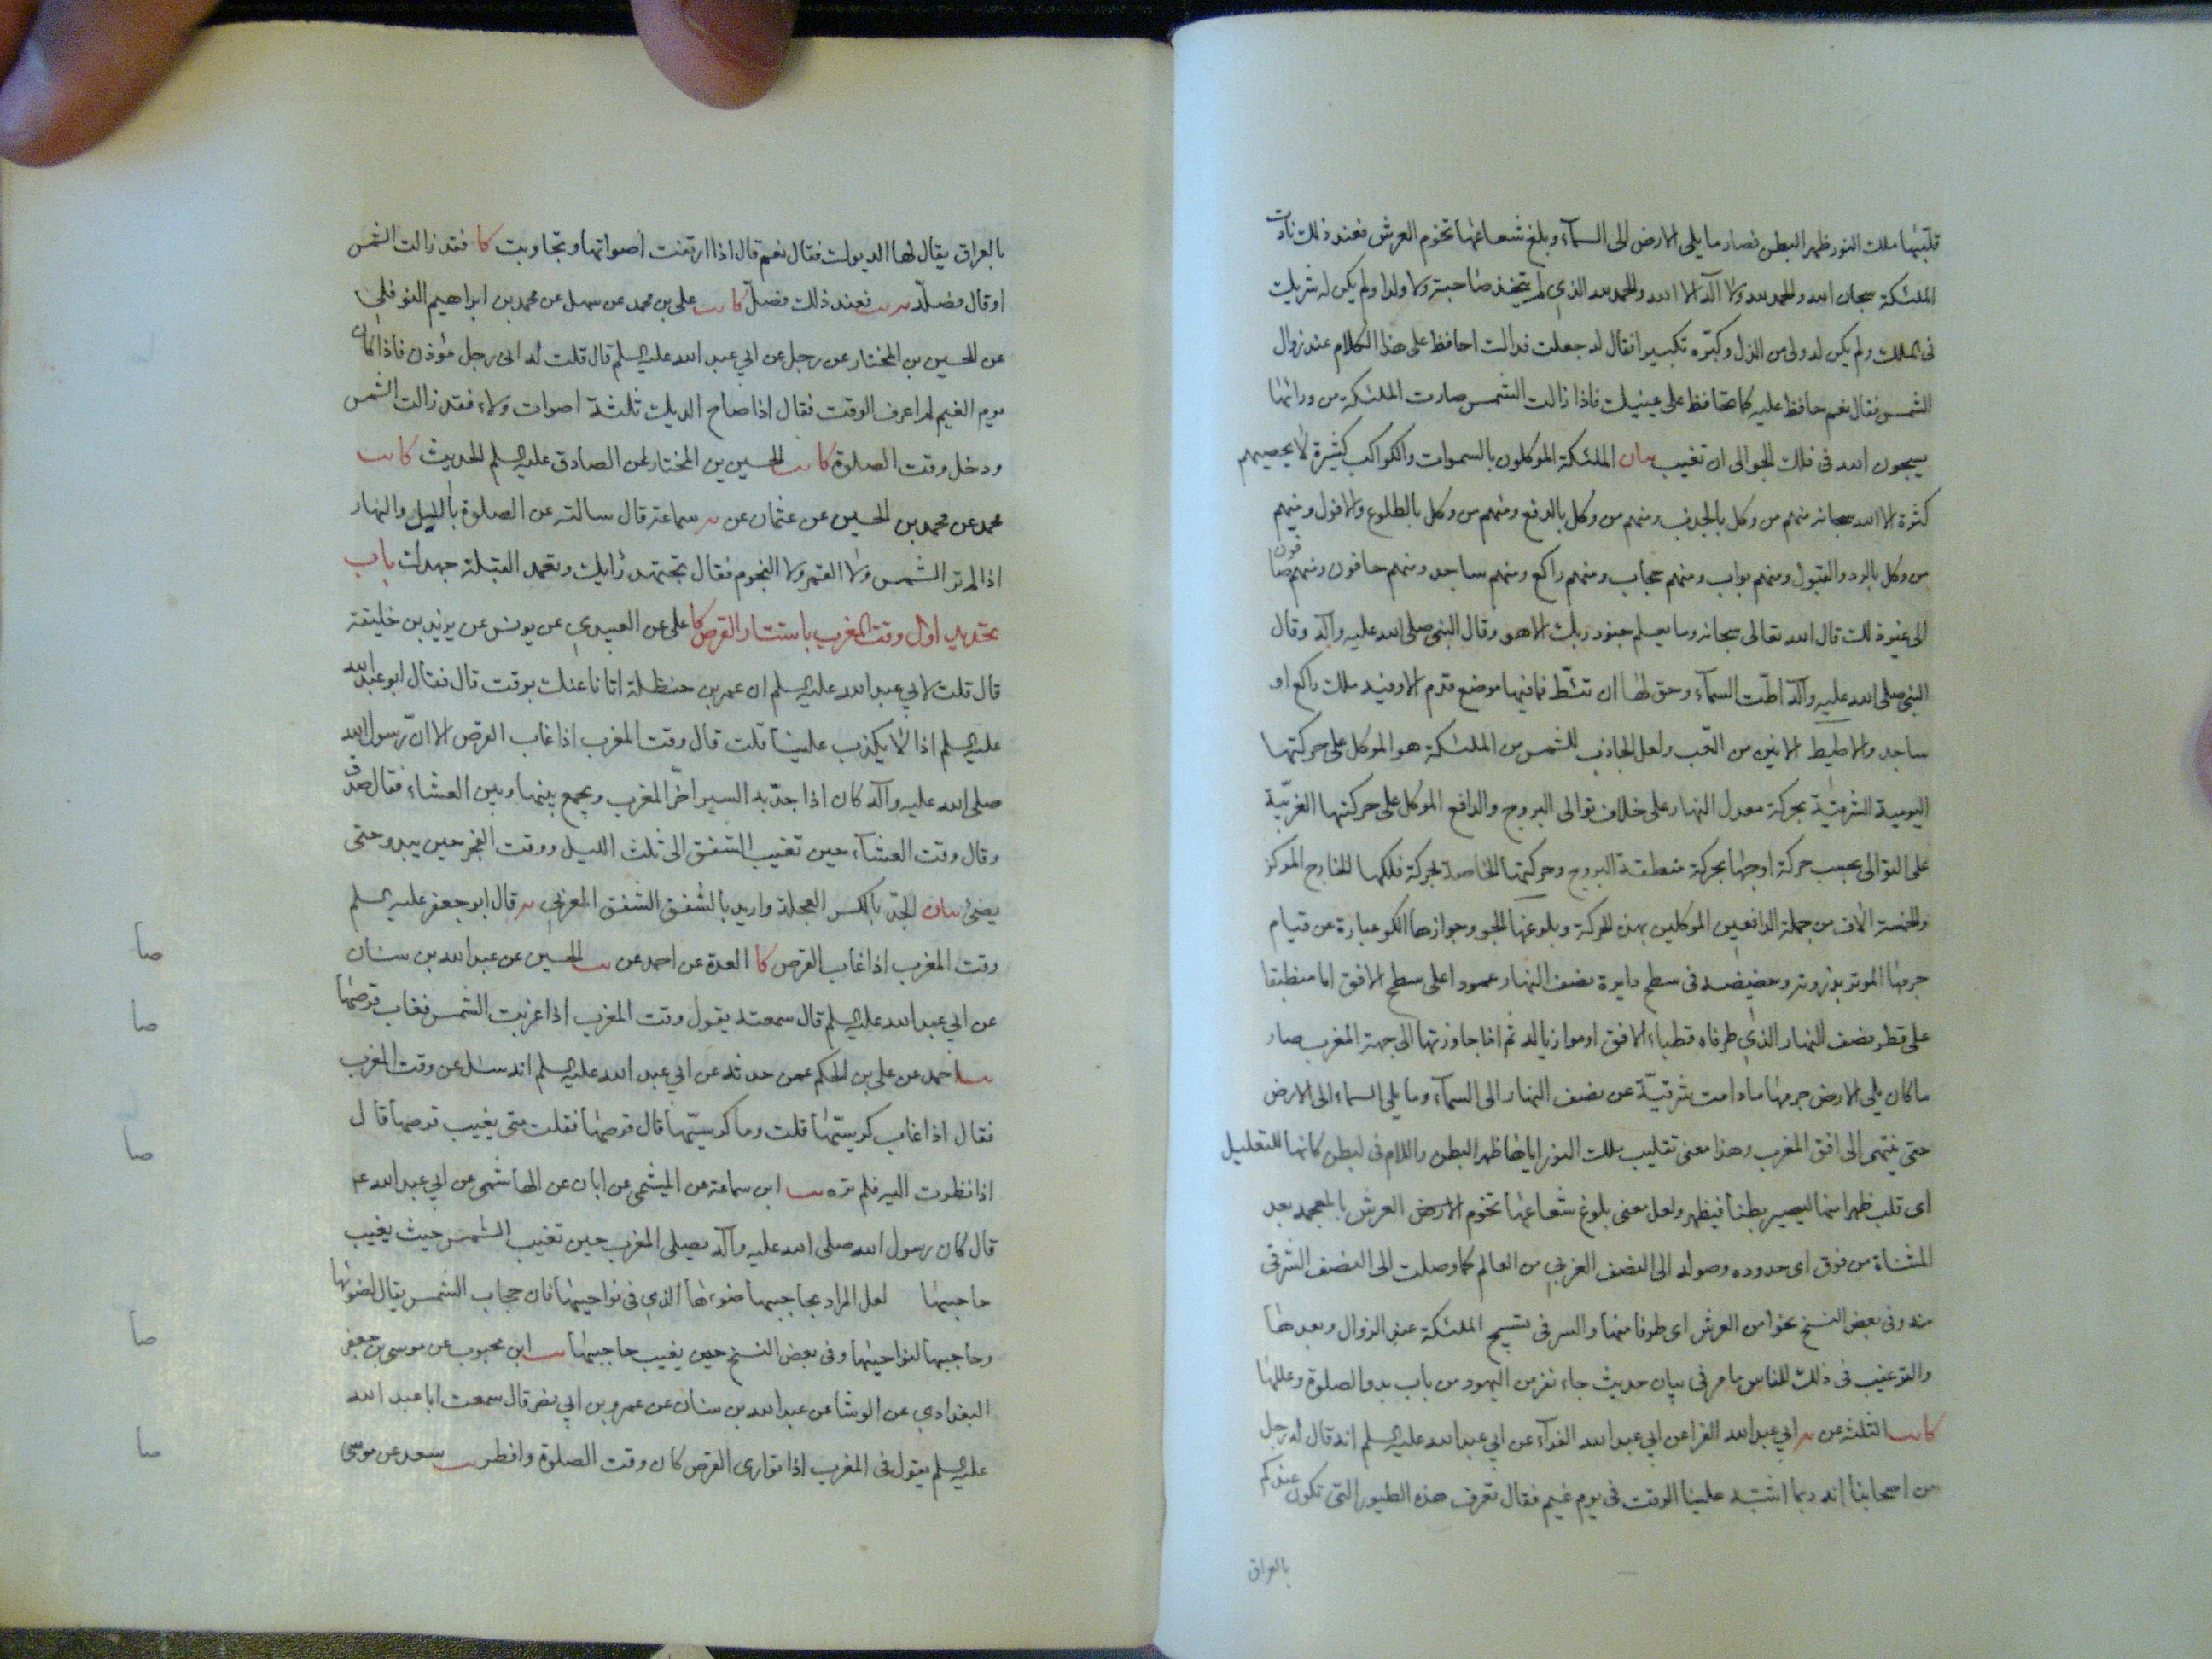 قلبها ملك النور ظهر البطن فصار ما يلى الارض الى السمآء وبلغ شعاعها تخوم العرش فعند ذلك نادت
الملئكة سبحان الله والحمد لله ولا اله الا الله والحمد لله الذى لم يتخذ صاحبة ولا ولدا ولم يكن له شريك
فى الملك ولم يكن له ولى من الذل وكبّره تكبيرا فقال له جعلت فداك احافظ على هذا الكلام عند زوال
الشمس فقال نعم حافظ عليه كما تحافظ على عينيك فاذا زالت الشمس صارت الملئكة من ورائها
يسبحون الله فى فلك الجو الى ان تغيب بيان الملئكة الموكلون بالسموات والكواكب كثيرة لا يحصيهم
كثرة الا الله سبحانه منهم من وكل بالجذب ومنهم من وكل بالدفع ومنهم من وكل بالطلوع والافول ومنهم
من وكل بالرد والقبول ومنهم بواب ومنهم حجاب ومنهم راكع ومنهم ساجد ومنهم حافون ومنهم صافون
الى غير ذلك قال الله تعالى سبحانه وما يعلم جنود ربك الا هو وقال النبى صلى الله عليه وآله وقال
النبى صلى الله عليه وآله اطّت السمآء وحق لها ان تئطّ فما فيها موضع قدم الا وفيه ملك راكع او
ساجد والاطيط الانين من التعب ولعل الجاذب للشمس من الملئكة هو الموكل على حركتها
اليومية الشرقيّة بحركة معدل النهار على خلاف توالى البروج والدافع الموكل على حركتها الغربيّة
على التوالى بحسب حركة اوجها بحركة منطقة البروج وحركتها الخاصة بحركة فلكها الخارج المركز
والخمسة الآف من جملة الدافعين الموكلين بهذه الحركة وبلوغها الجو وجوازها الكو عبارة عن قيام
جرمها الموتر بذروته وحضيضه فى سطح دايرة نصف النهار عمودا على سطح الافق اما منطبقا
على قطر نصف النهار الذى طرفاه قطباء الافق او موازيا له ثم اذا جاوزتها الى جهة المغرب صار
ما كان يلى الارض جرمها مادامت شرقيّة عن نصف النهار الى السمآء وما يلى السماء الى الارض
حتى ينتهى الى افق المغرب وهذا معنى تقليب ملك النور اياها ظهر البطن واللام فى لبطن كانها للتعليل
اى قلب ظهرا منها ليصير بطنا فيظهر ولعل معنى بلوغ شعاعها تخوم الارض العرش بالمعجمه بعد
المثناة من فوق اى حدوده وصوله الى النصف الغربى من العالم كما وصلت الى النصف الشرقى
منه وفى بعض النسخ نحوا من العرش اى طرفا منها والسر فى تسبيح الملئكة عند الزوال وبعدها
والترغيب فى ذلك للناس ما مر فى بيان حديث جاء نفر من اليهود من باب بدو الصلوة وعللها
كا يب الثلثة عن يه ابى عبد الله الفرا عن ابى عبد الله الفرآء عن ابى عبد الله عليه السلم انه قال له رجل
من اصحابنا انه ربما اشتبه علينا الوقت فى يوم غيم فقال تعرف هذه الطيور التى تكون عندكم
بالعراق
بالعراق يقال لها الديوك فقال نعم قال اذا ارتفعت اصواتها وتجاوبت كا فقد زالت الشمس
او قال فصلّه يه يب فعند ذلك فصلّ كا يب على بن محمد عن سهل عن محمد بن ابراهيم النوفلى
عن الحسين بن المختار عن رجل عن ابى عبد الله عليه السلم قال قلت له انى رجل مؤذن فاذا كان
يوم الغيم لم اعرف الوقت فقال اذا صاح الديك ثلثة اصوات ولاء فقد زالت الشمس
ودخل وقت الصلوة كا يب الحسين بن المختار عن الصادق عليه السلم الحديث كا يب
محمد عن محمد بن الحسين عن عثمان عن يه سماعة قال سالته عن الصلوة بالليل والنهار
اذا لم تر الشمس ولا القمر ولا النجوم فقال تجتهد رايك وتعمد القبلة جهدك باب
تحديد اول وقت المغرب باستتار القرص كا على عن العبيدى عن يونس عن يزيد بن خليفة
قال قلت لابى عبد الله عليه السلم ان عمر بن حنظلة اتانا عنك بوقت قال فقال ابو عبد الله
عليه السلم اذا لا يكذب علينا قلت قال وقت المغرب اذا غاب القرص الا انّ رسول الله
صلى الله عليه وآله كان اذا جدّ به السير اخّر المغرب ويجمع بينها وبين العشاء فقال صدق
وقال وقت العشآء حين تغيب الشفق الى ثلث الليل ووقت الفجر حين يبدو حتى
يضئ بيان الجدّ بالكسر العجلة واريد بالشفق الشفق المغربى يه قال ابو جعفر عليه السلم
وقت المغرب اذا غاب القرص كا العدة عن احمد عن يب الحسين عن عبد الله بن سنان
عن ابى عبد الله عليه السلم قال سمعته يقول وقت المغرب اذا غربت الشمس فغاب قرصها
يب احمد عن على بن الحكم عمن حدثه عن ابى عبد الله عليه السلم انه سئل عن وقت المغرب
فقال اذا غاب كرسيّها قلت وما كرسيّها قال قرصها فقلت متى يغيب قرصها قال
اذا نظرت اليه فلم تره يب ابن سماعة عن الميثمى عن ابان عن الهاشمى عن ابى عبد الله ع
قال كان رسول الله صلى الله عليه وآله يصلى المغرب حين تغيب الشمس حيث يغيب
حاجبها لعل المراد بحاجبها ضوءها الذى فى نواحيها فان حجاب الشمس يقال لضوئها
وحاجبها لنواحيها وفى بعض النسخ حين يغيب حاجبها يب ابن محبوب عن موسى بن جعفر
البغدادى عن الوشا عن عبد الله بن سنان عن عمرو بن ابى نصر قال سمعت ابا عبد الله
عليه السلم يقول فى المغرب اذا توارى القرص كان وقت الصلوة وافطر يب سعد عن موسى
صا
صا
صا
صا
صا